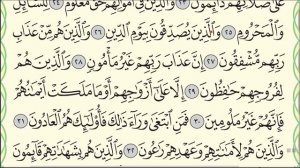 عَلَىٰ صَلَاتِهِمْ دَآئِمُونَ ٢٣ وَٱلَّذِينَ فِىٓ أَمْوَٰلِهِمْ حَقٌّ مَّعْلُومٌ ٢٤ لِّلسَّآئِلِ
وَٱلْمَحْرُومِ ٢٥ وَٱلَّذِينَ يُصَدِّقُونَ بِيَوْمِ ٱلدِّينِ ٢٦ وَٱلَّذِينَ هُم مِّنْ عَذَابِ
رَبِّهِم مُّشْفِقُونَ ٢٧ إِنَّ عَذَابَ رَبِّهِمْ غَيْرُ مَأْمُونٍ ٢٨ وَٱلَّذِينَ هُمْ
لِفُرُوجِهِمْ حَٰفِظُونَ ٢٩ إِلَّا عَلَىٰٓ أَزْوَٰجِهِمْ أَوْ مَا مَلَكَتْ أَيْمَٰنُهُمْ
فَإِنَّهُمْ غَيْرُ مَلُومِينَ ٣٠ فَمَنِ ٱبْتَغَىٰ وَرَآءَ ذَٰلِكَ فَأُو۟لَٰٓئِكَ هُمُ ٱلْعَادُونَ ٣١
وَٱلَّذِينَ هُمْ لِأَمَٰنَٰتِهِمْ وَعَهْدِهِمْ رَٰعُونَ ٣٢ وَٱلَّذِينَ هُم بِشَهَٰدَٰتِهِمْ قَآئِمُونَ